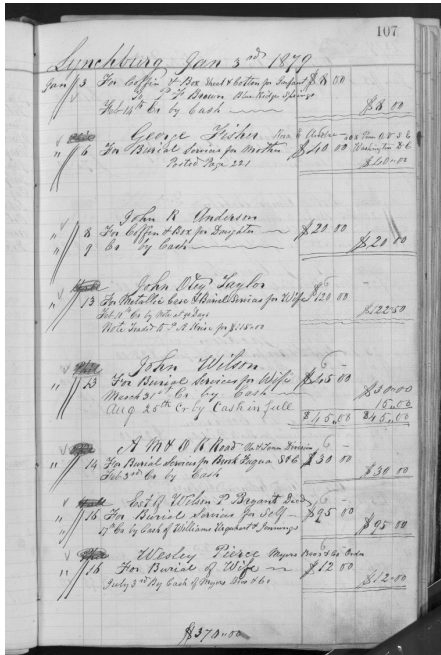 107
Lynchburg Jan 3rd 1879
Jan 3 For Coffin & Box & Cotton for Infant $8 00
Blue Ridge Springs
Feb 14th Cr by Cash $8 00
George Fisher
" 6 For Burial Services for Mother $40 00 Washington D.C.
Posted Page 221 $40-00
John R Anderson
" 8 For Coffin & Box for Daughter $20 00
" 9 Cr by Cash $20 00
John Otey Taylor
" 13 For Metallic Case & Burial Services for Wife $120 00
Feb 10th Cr by Note at 90 Days $122 50
Note Traded to for $115-00
John Wilson
" 23 For Burial Services for Wife $45 00
March 31st Cr by Cash $30-00
Aug 25th Cr by Cash in full 15.00
$45.00 $45.00
A M & O R Road Va & Tenn Division
" 14 For Burial Services for Bush Fuqua $30 00
Feb 3rd Cr by Cash $30 00
Est R Wilson P Bryant Decd
" 16 For Burial Services for Self $95 00
17th Cr by Cash of Williams Urquhart & Jennings $95 00
Wesley Pierce Myers Bros & Co Order
" 16 For Burial of Wife $12 00
July 3rd By Cash of Myers Bros & Co $12-00
$370-00